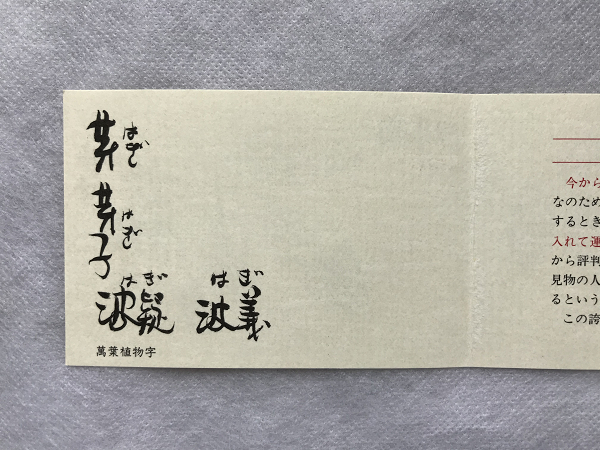 芽
芽子
はぎ
波疑
はぎ
波義
はぎ
萬葉植物字
今から
なのため
するとき
入れて運
から評判
見物の人
るという
この誇